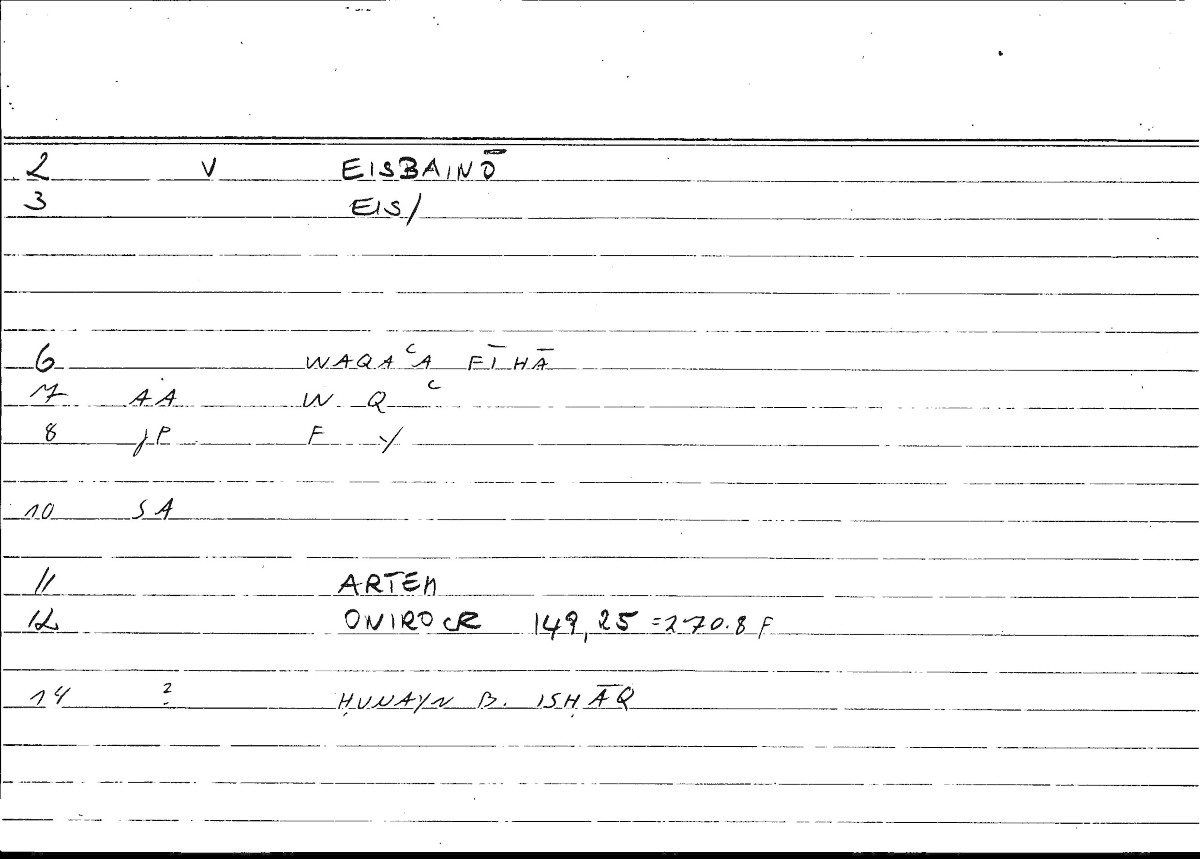 2 V EISBAINŌ
3 EIS/
6 WAQAʿA FĪHĀ
7 AA W Q ʿ
8 JP F Y
10 SA
11 ARTEM
12 ONIROCR 149,25 =270.8 F
14 ? ḤUNAYN B. ISḤĀQ